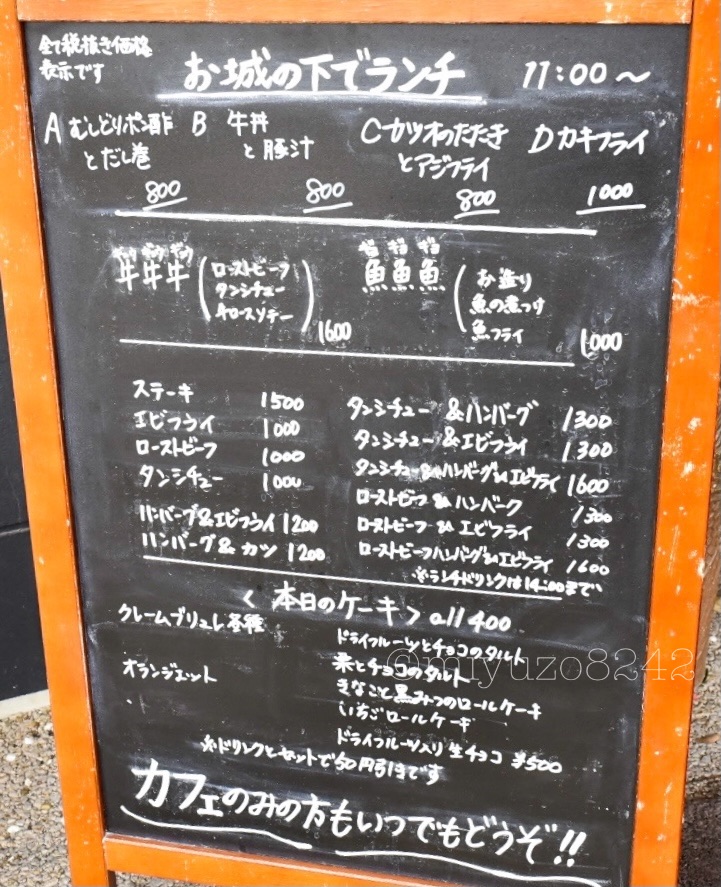 全て税抜き価格
表示です
お城の下でランチ 11:00〜
A むしどりポン酢 とだし巻 800
B 牛丼 と豚汁 800
C カツオのたたき とアジフライ 800
D カキフライ 1000
ギュウ ギュウ ギュウ
牛牛牛 (ローストビーフ タンシチュー 牛ロースソテー) 1600
ギョ ギョ ギョ
魚魚魚 (お造り 魚の煮つけ 魚フライ) 1000
ステーキ 1500
エビフライ 1000
ローストビーフ 1000
タンシチュー 1000
ハンバーグ&エビフライ 1200
ハンバーグ&カツ 1200
タンシチュー &ハンバーグ 1300
タンシチュー &エビフライ 1300
タンシチュー&ハンバーグ&エビフライ 1600
ローストビーフ &ハンバーグ 1300
ローストビーフ & エビフライ 1300
ローストビーフハンバーグ&エビフライ 1600
※ランチドリンクは14:00まで
〈 本日のケーキ 〉 all 400
クレームブリュレ各種
オランジェット
ドライフルーツとチョコのタルト
栗とチョコのタルト
きなこと黒みつのロールケーキ
いちごロールケーキ
ドライフルーツ入り生チョコ ¥500
※ドリンクとセットで50円引きです
カフェのみの方もいつでもどうぞ!!
@miyuzo8242